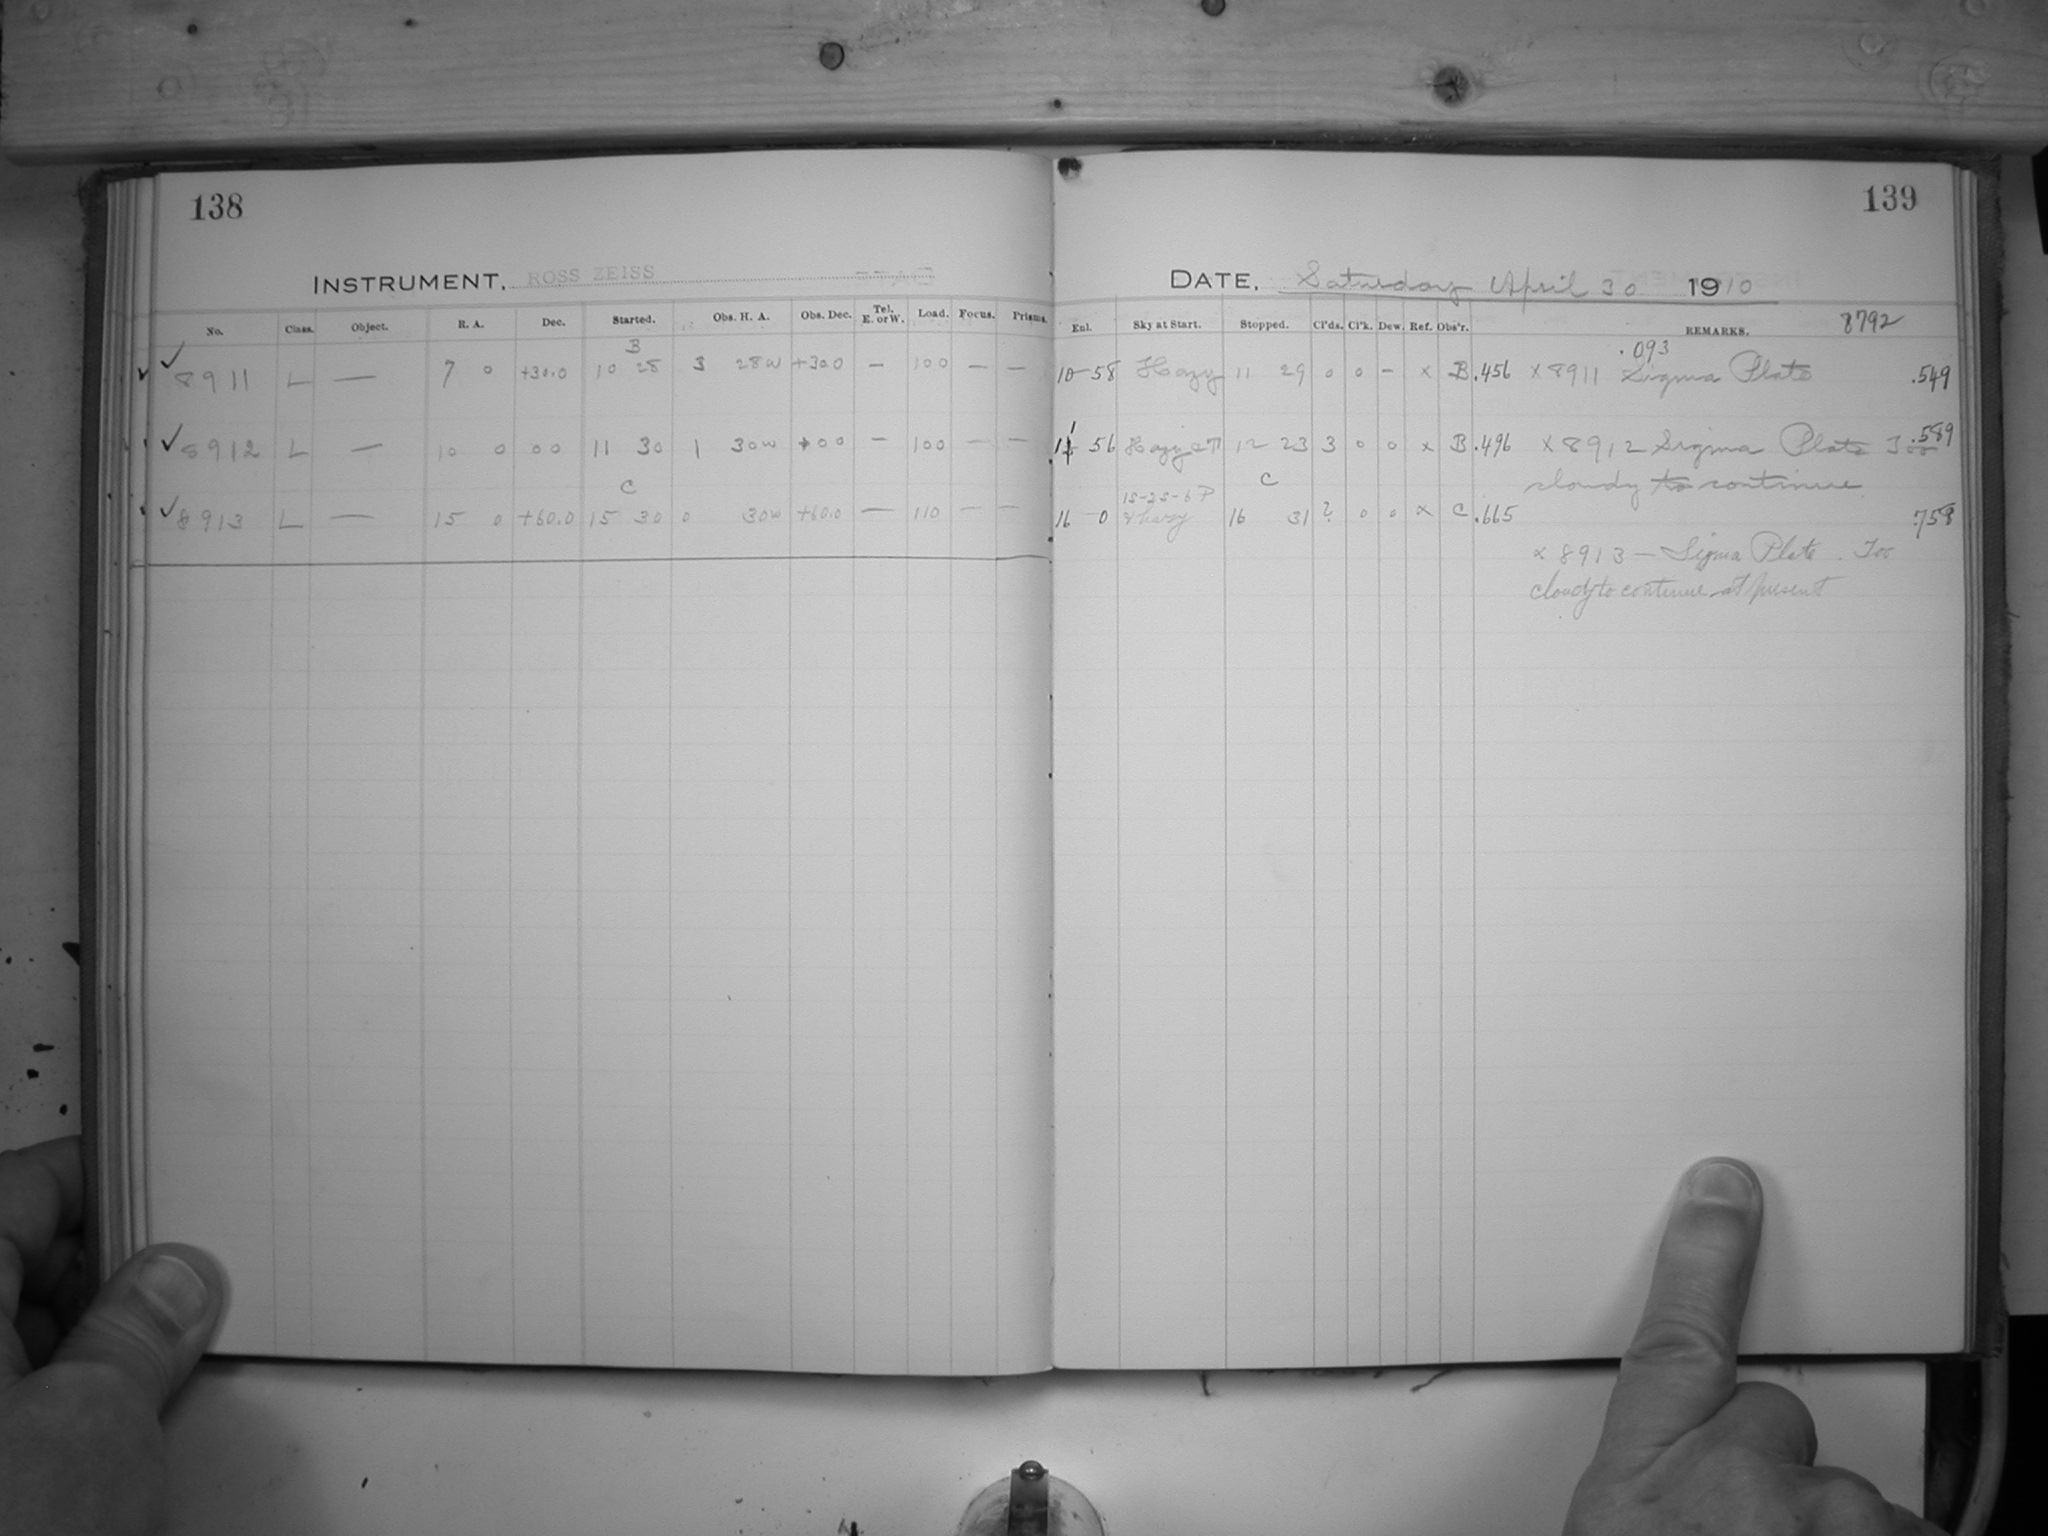 138
139
INSTRUMENT, ROSS ZEISS
DATE, Saturday April 30 1910
No. Class. Object. R. A. Dec. Started. Obs. H. A. Obs. Dec. Tel. E. or W. Load. Focus. Prisms.
Enl. Sky at Start. Stopped. Cl'ds. Cl'k. Dew. Ref. Obs'r. REMARKS. 8792
B
.093
✓ ✓ 8911 L — 7 0 +30.0 10 28 3 28w +30.0 — 100 — — 10 58 Hazy 11 29 0 0 — x B .456 x 8911 Sigma Plate .549
✓ 8912 L — 10 0 00 11 30 1 30w +00 — 100 — — 11 56 Hazy 12 23 3 0 0 x B .496 x 8912 Sigma Plate Too .589
cloudy to continue
C
C
15-25-6 P
✓ 8913 L — 15 0 +60.0 15 30 0 30w +60.0 — 110 — — 16 0 16 31 2 0 0 x C .665 .758
x 8913 — Sigma Plate. Too
cloudy to continue at present